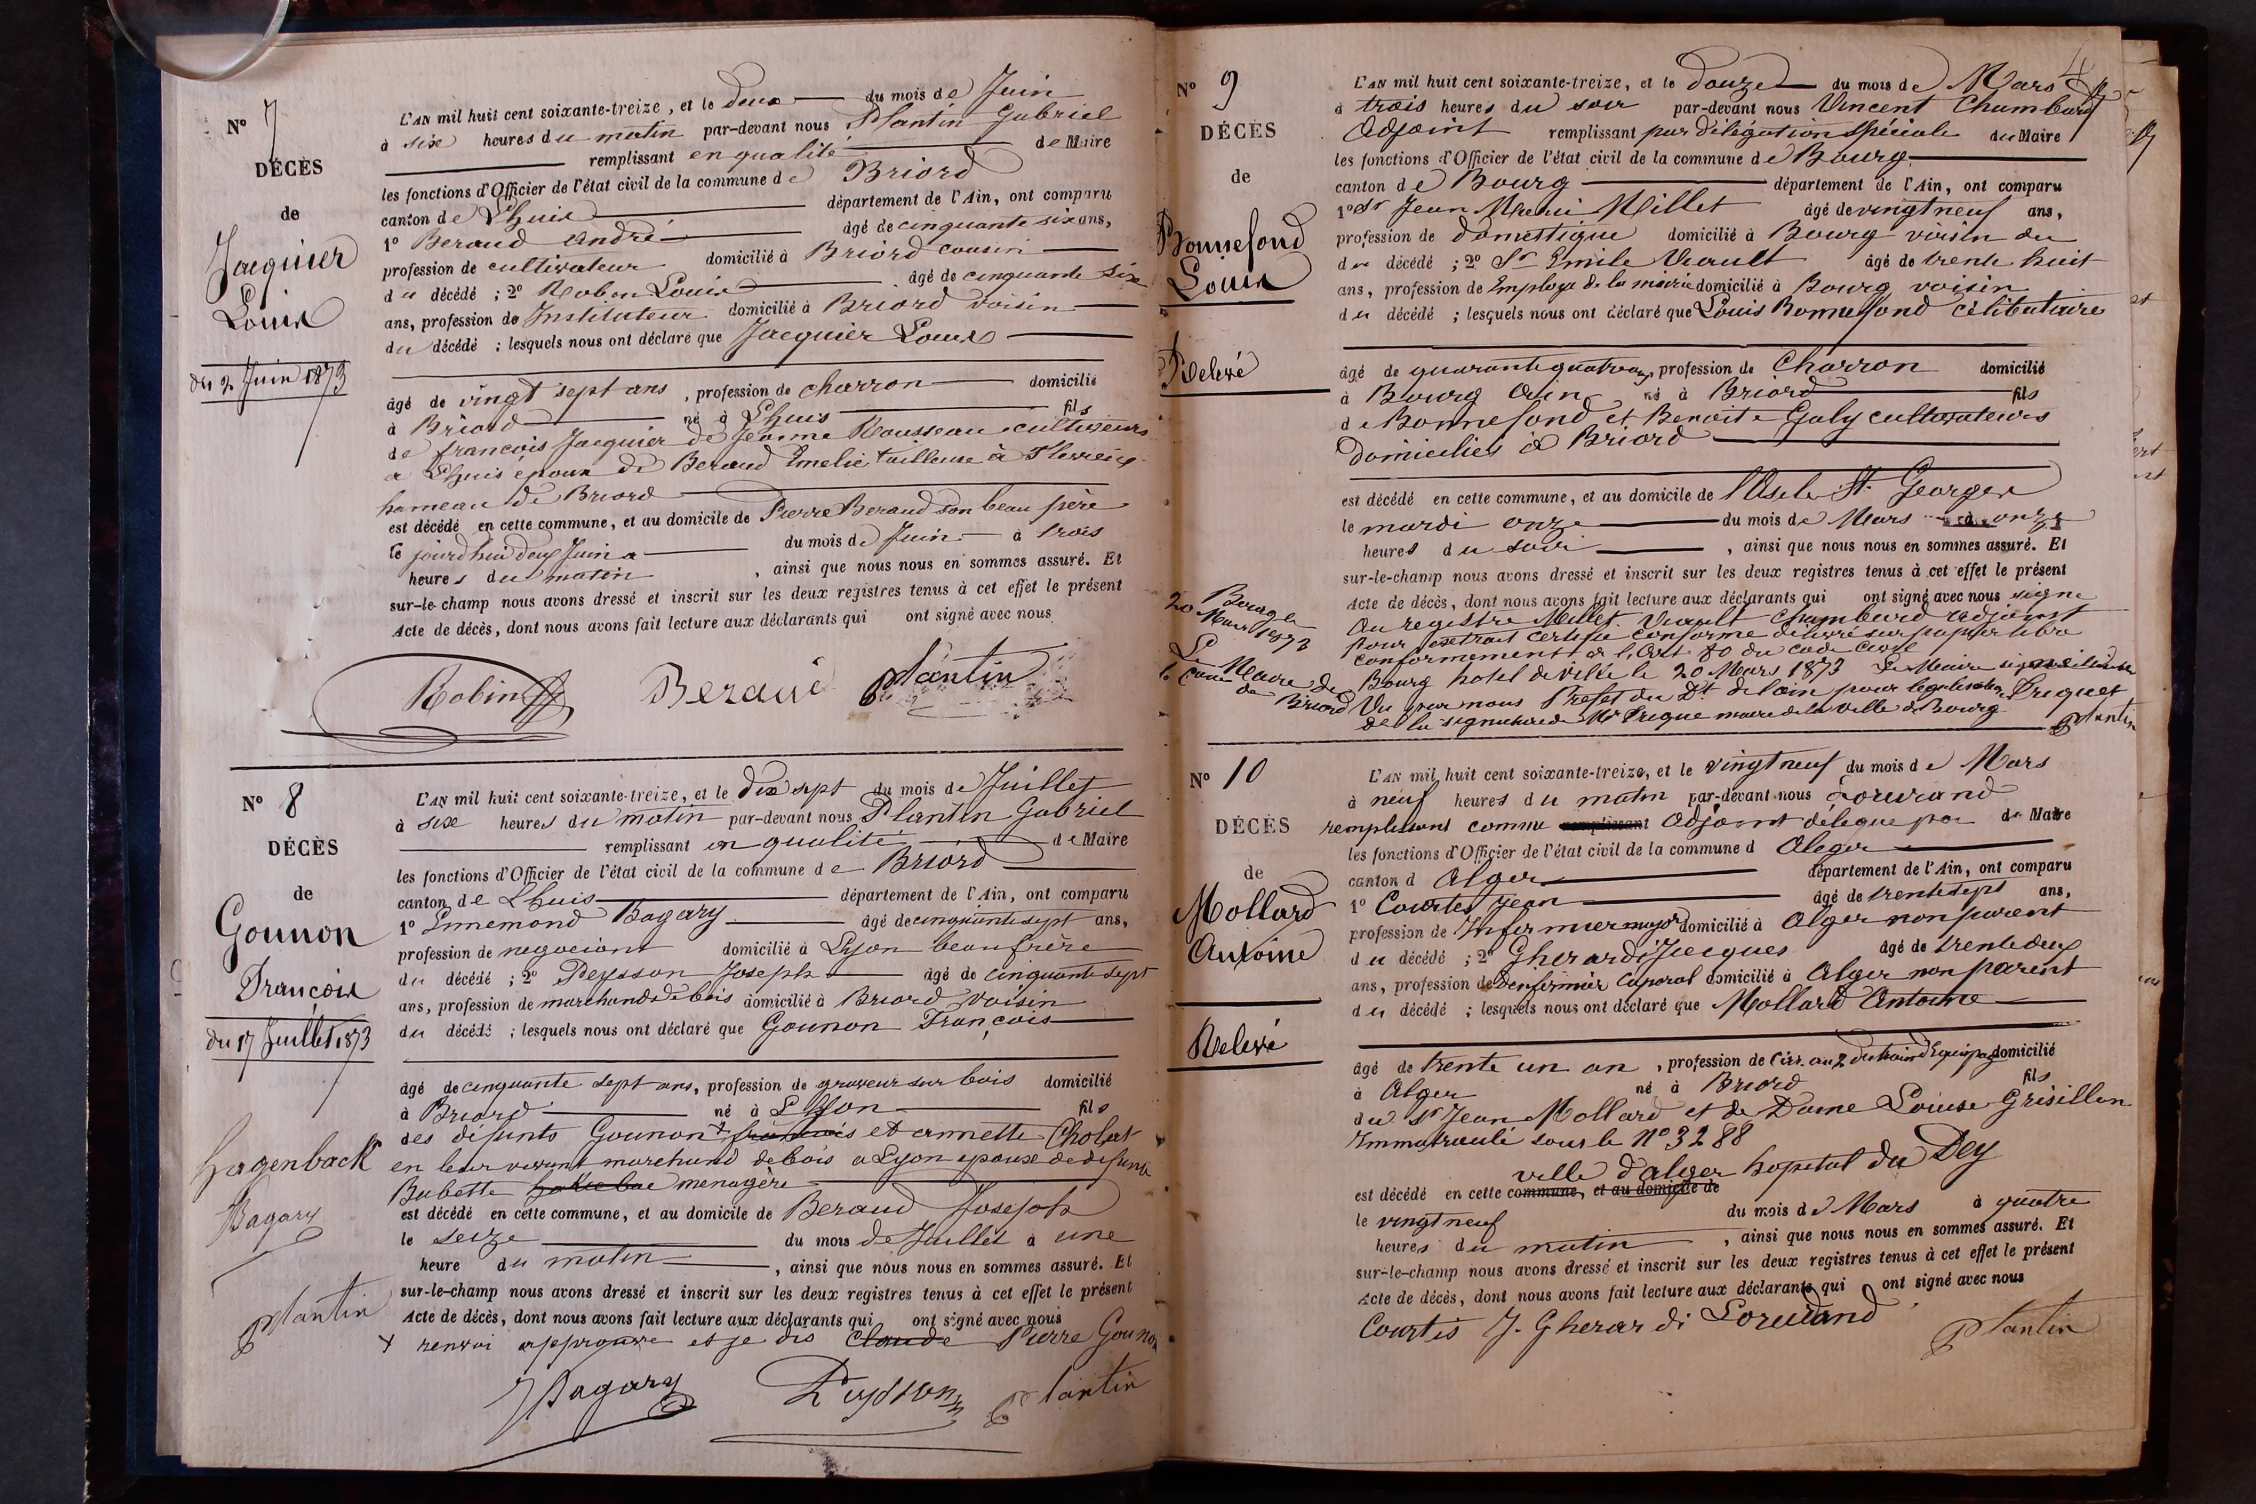 N° 7
DÉCÈS
de
Jacquier
Louis
du 2 Juin 1873
L'AN mil huit cent soixante-treize, et le deux du mois de Juin
à six heures du matin par-devant nous Plantin Gabriel
remplissant en qualité de Maire
les fonctions d'Officier de l'état civil de la commune de Briord
canton de Lhuis département de l'Ain, ont comparu
1° Beraud André âgé de cinquante six ans,
profession de cultivateur domicilié à Briord cousin
du décédé ; 2° Robin Louis âgé de cinquante six
ans, profession de Instituteur domicilié à Briord voisin
du décédé ; lesquels nous ont déclaré que Jacquier Louis
âgé de vingt sept ans, profession de charron domicilié
à Briord né à Lhuis fils
de francois Jacquier de Jeanne Rousseau cultiveurs
a Lhuis époux de Beraud Emelie tailleuse à
hameau de Briord
est décédé en cette commune, et au domicile de Pierre Beraud son beau père
le jourd'hui deux Juin du mois de Juin à trois
heures du matin, ainsi que nous nous en sommes assuré. Et
sur-le-champ nous avons dressé et inscrit sur les deux registres tenus à cet effet le présent
Acte de décès, dont nous avons fait lecture aux déclarants qui ont signé avec nous
Robin Beraud Plantin
N° 8
DÉCÈS
de
Gounon
François
du 17 Juillet 1873
Hagenback
Bagary
Plantin
L'AN mil huit cent soixante-treize, et le dix sept du mois de Juillet
à six heures du matin par-devant nous Plantin Gabriel
remplissant en qualité de Maire
les fonctions d'Officier de l'état civil de la commune de Briord
canton de Lhuis département de l'Ain, ont comparu
1° Ennemond Bagary âgé de cinquante sept ans,
profession de negociant domicilié à Lyon beau frère
du décédé ; 2° Peysson Joseph âgé de cinquante sept
ans, profession de marchand de bois domicilié à Briord voisin
du décédé ; lesquels nous ont déclaré que Gounon François
âgé de cinquante sept ans, profession de graveur sur bois domicilié
à Briord né à Lyon fils
des défunts Gounon + francois et annette Cholat
en leur vivant marchand de bois a Lyon epoux de defunte
Babette menagère
est décédé en cette commune, et au domicile de Beraud Joseph
le seize du mois de Juillet à une
heure du matin, ainsi que nous nous en sommes assuré. Et
sur-le-champ nous avons dressé et inscrit sur les deux registres tenus à cet effet le présent
Acte de décès, dont nous avons fait lecture aux déclarants qui ont signé avec nous
+ renvoi approuvé et je dis Claude Pierre Gounon
Bagary Peysson Plantin
4
N° 9
DÉCÈS
de
Bonnefond
Louis
Relevé
20 Mars 1873
Le Maire de
la Comne de Briord
L'AN mil huit cent soixante-treize, et le douze du mois de Mars
à trois heures du soir par-devant nous Vincent Chambard
Adjoint remplissant par délégation spéciale du Maire
les fonctions d'Officier de l'état civil de la commune de Bourg
canton de Bourg département de l'Ain, ont comparu
1° Sr Jean Marie Millet âgé de vingt neuf ans,
profession de domestique domicilié à Bourg voisin du
du décédé ; 2° Sr Emile Vuault âgé de trente huit
ans, profession de Employé de la mairie domicilié à Bourg voisin
du décédé ; lesquels nous ont déclaré que Louis Bonnefond célibataire
âgé de quarante quatre ans, profession de Charron domicilié
à Bourg Ain né à Briord fils
de Bonnefond et Benoite Galy cultivateurs
domiciliés à Briord
est décédé en cette commune, et au domicile de l'Asile St. Georges
le mardi onze du mois de Mars à onze
heures du soir, ainsi que nous nous en sommes assuré. Et
sur-le-champ nous avons dressé et inscrit sur les deux registres tenus à cet effet le présent
Acte de décès, dont nous avons fait lecture aux déclarants qui ont signé avec nous signé
au registre Millet Vuault Chambard adjoint
pour extrait certifié conforme délivré sur papier libre
conformement a l'Art 80 du code Civil
Bourg hotel de ville le 20 Mars 1873 Le Maire signé
Vu par nous Prefet du Dt de l'ain pour legalisation Friquet
de la signature de Mr Frique maire de la ville de Bourg
Plantin
N° 10
DÉCÈS
de
Mollard
Antoine
Relevé
L'AN mil huit cent soixante-treize, et le vingt neuf du mois de Mars
à neuf heures du matin par-devant nous Lorurand
remplissant comme remplissant adjoint délégué par du Maire
les fonctions d'Officier de l'état civil de la commune d Alger
canton d Alger département de l'Ain, ont comparu
1° Courtes Jean âgé de trente sept ans,
profession de Infirmier major domicilié à Alger non parent
du décédé ; 2° Gherardi Jacques âgé de trente deux
ans, profession de d'enfirmier Caporal domicilié à Alger non parent
du décédé ; lesquels nous ont déclaré que Mollard Antoine
âgé de trente un an, profession de Cirr. au 2 du train d'Equipag domicilié
à Alger né à Briord fils
du Sr Jean Mollard et de Dame Louise Grisillon
Immatraulé sous le N° 3288
ville d'alger hopital du Dey
est décédé en cette commune, et au domicile de
le vingt neuf du mois de Mars à quatre
heures du matin, ainsi que nous nous en sommes assuré. Et
sur-le-champ nous avons dressé et inscrit sur les deux registres tenus à cet effet le présent
Acte de décès, dont nous avons fait lecture aux déclarants qui ont signé avec nous
Courtis J. Gherar di Lorurand Plantin